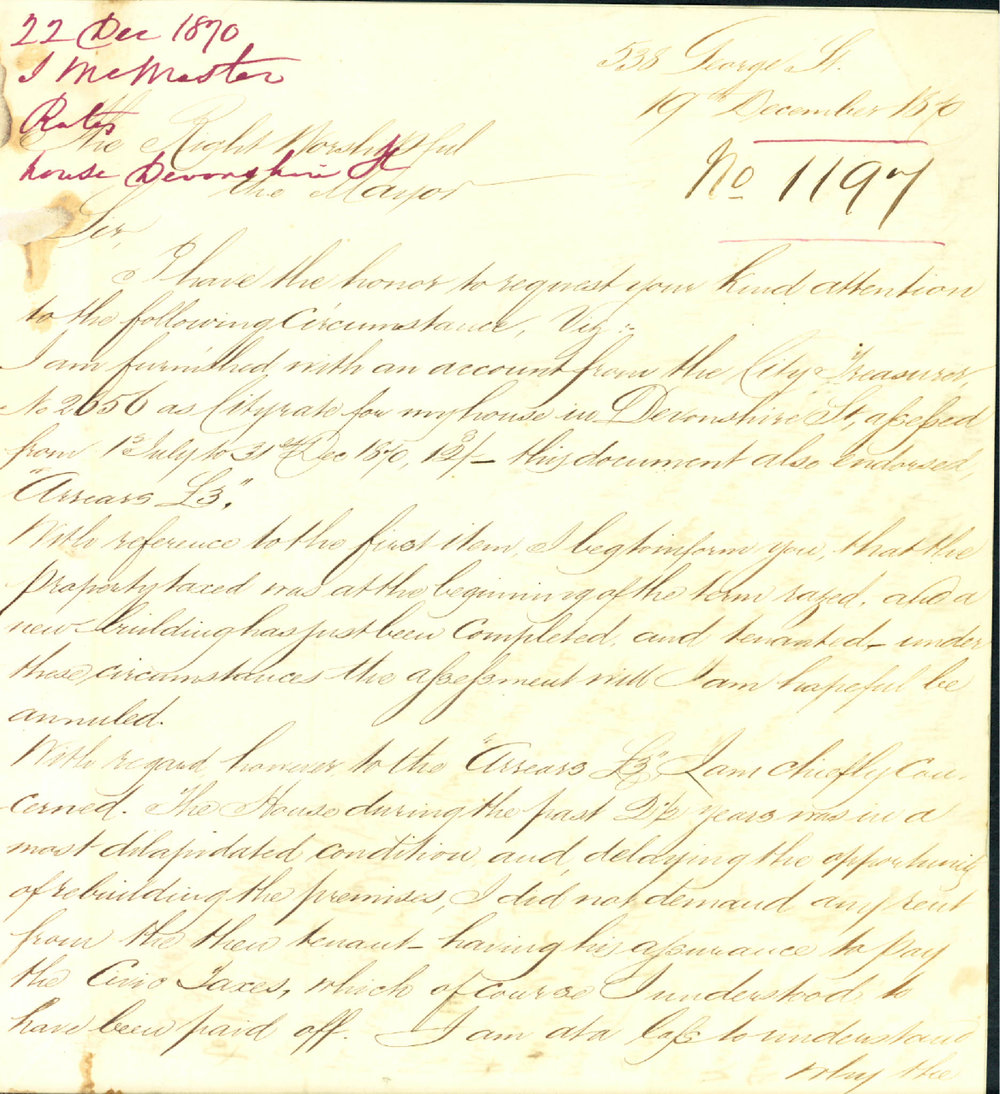 22 Dec 1870
J McMaster
Rates
house Devonshire St
538 George St.
19th December 1870
No 1197
The Right Worshipful
the Mayor
Sir,
I have the honor to request your kind attention
to the following Circumstance, Viz:-
I am furnished with an account from the "City Treasurer,
No 2656 as City rate for my house in Devonshire St, assessed
from 1st July to 31st Dec 1870, 12/- this document also endorsed,
"Arrears £3".
With reference to the first item, I beg to inform you, that the
property taxed was at the beginning of the term razed, and a
new building has just been Completed, and tenanted - under
these circumstances the assessment will I am hopeful be
annuled.
With regard however, to the "Arrears £3" I am chiefly con-
cerned. The House during the past 2½ years was in a
most dilapidated condition, and, delaying the opportunity
of rebuilding the premises, I did not demand any rent
from the then tenant - having his assurance to pay
the Civic Taxes, which of course I understood to
have been paid off. I am at a loss to understand
why the